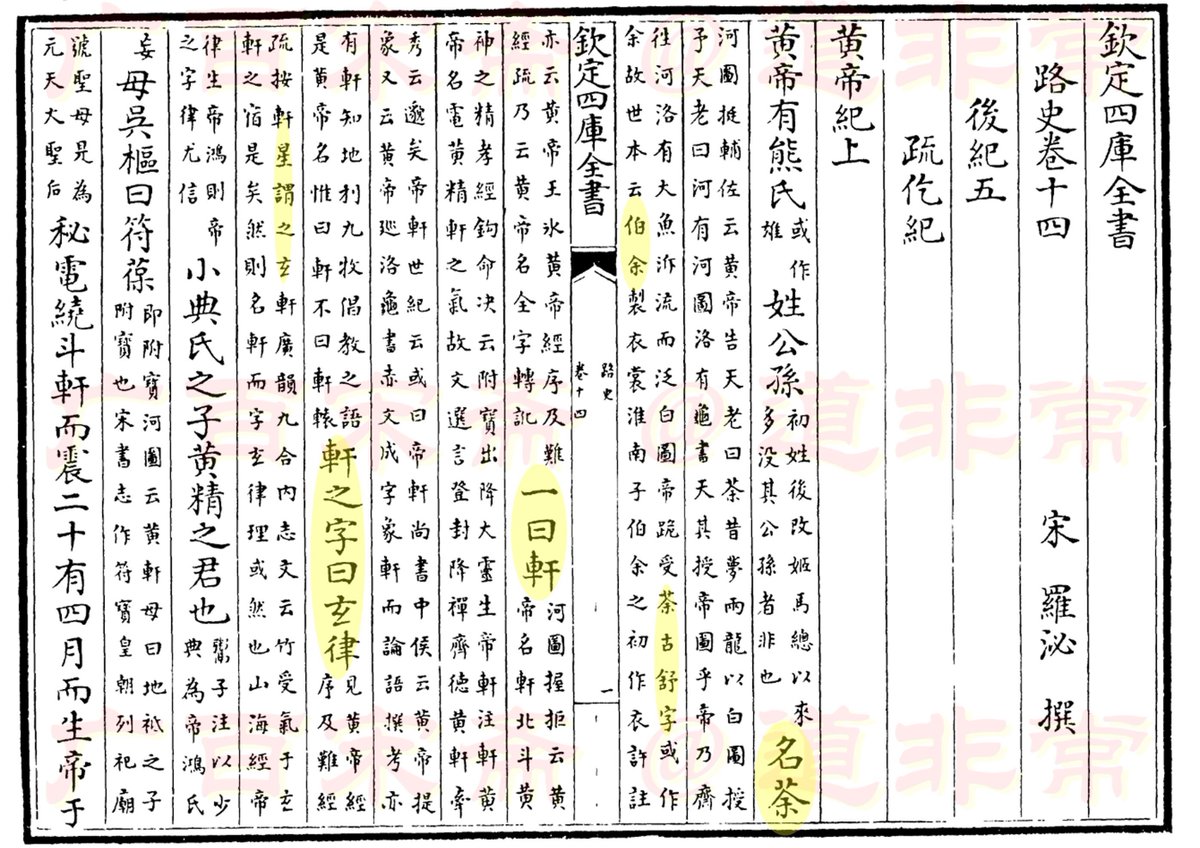 欽定四庫全書
路史卷十四 宋 羅泌 撰
後紀五
疏仡紀
黄帝紀上
黄帝有熊氏
或作
雄
姓公孫
初姓後改姬馬總以來
多没其公孫者非也
名荼
河圖挺輔佐云黄帝告天老曰荼昔夢兩龍以白圖授
予天老曰河有河圖洛有龜書天其授帝圖乎帝乃齊
往河洛有大魚泝流而泛白圖帝跪受荼古舒字或作
余故世本云伯余製衣裳淮南子伯余之初作衣許註
欽定四庫全書
路史
卷十四
一
亦云黄帝王氷黄帝經序及難
經疏乃云黄帝名全字轉訛
一曰軒
河圖握拒云黄
帝名軒北斗黄
神之精孝經鉤命决云附寶出降大靈生帝軒注軒黄
帝名電黄精軒之氣故文選言登封降禪齊德黄軒牽
秀云邈矣帝軒世紀云或曰帝軒尚書中侯云黄帝提
象又云黄帝廵洛龜書赤文成字象軒而論語撰考亦
有軒知地利九牧倡教之語
是黄帝名惟曰軒不曰軒轅
軒之字曰玄律
見黄帝經
序及難經
疏按軒星謂之玄軒廣韻九合内志文云竹受氣于玄
軒之宿是矣然則名軒而字玄律理或然也山海經帝
律生帝鴻則帝
之字律尤信
小典氏之子黄精之君也
鬻子注以少
典為帝鴻氏
妄
母吳樞曰符葆
即附寶河圖云黄軒母曰地祗之子
附寶也宋書志作符寶皇朝列祀廟
號聖母是為
元天大聖后
秘電繞斗軒而震二十有四月而生帝于
六百宋斋 @道非常
六百宋斋 @道非常
六百宋斋 @道非常